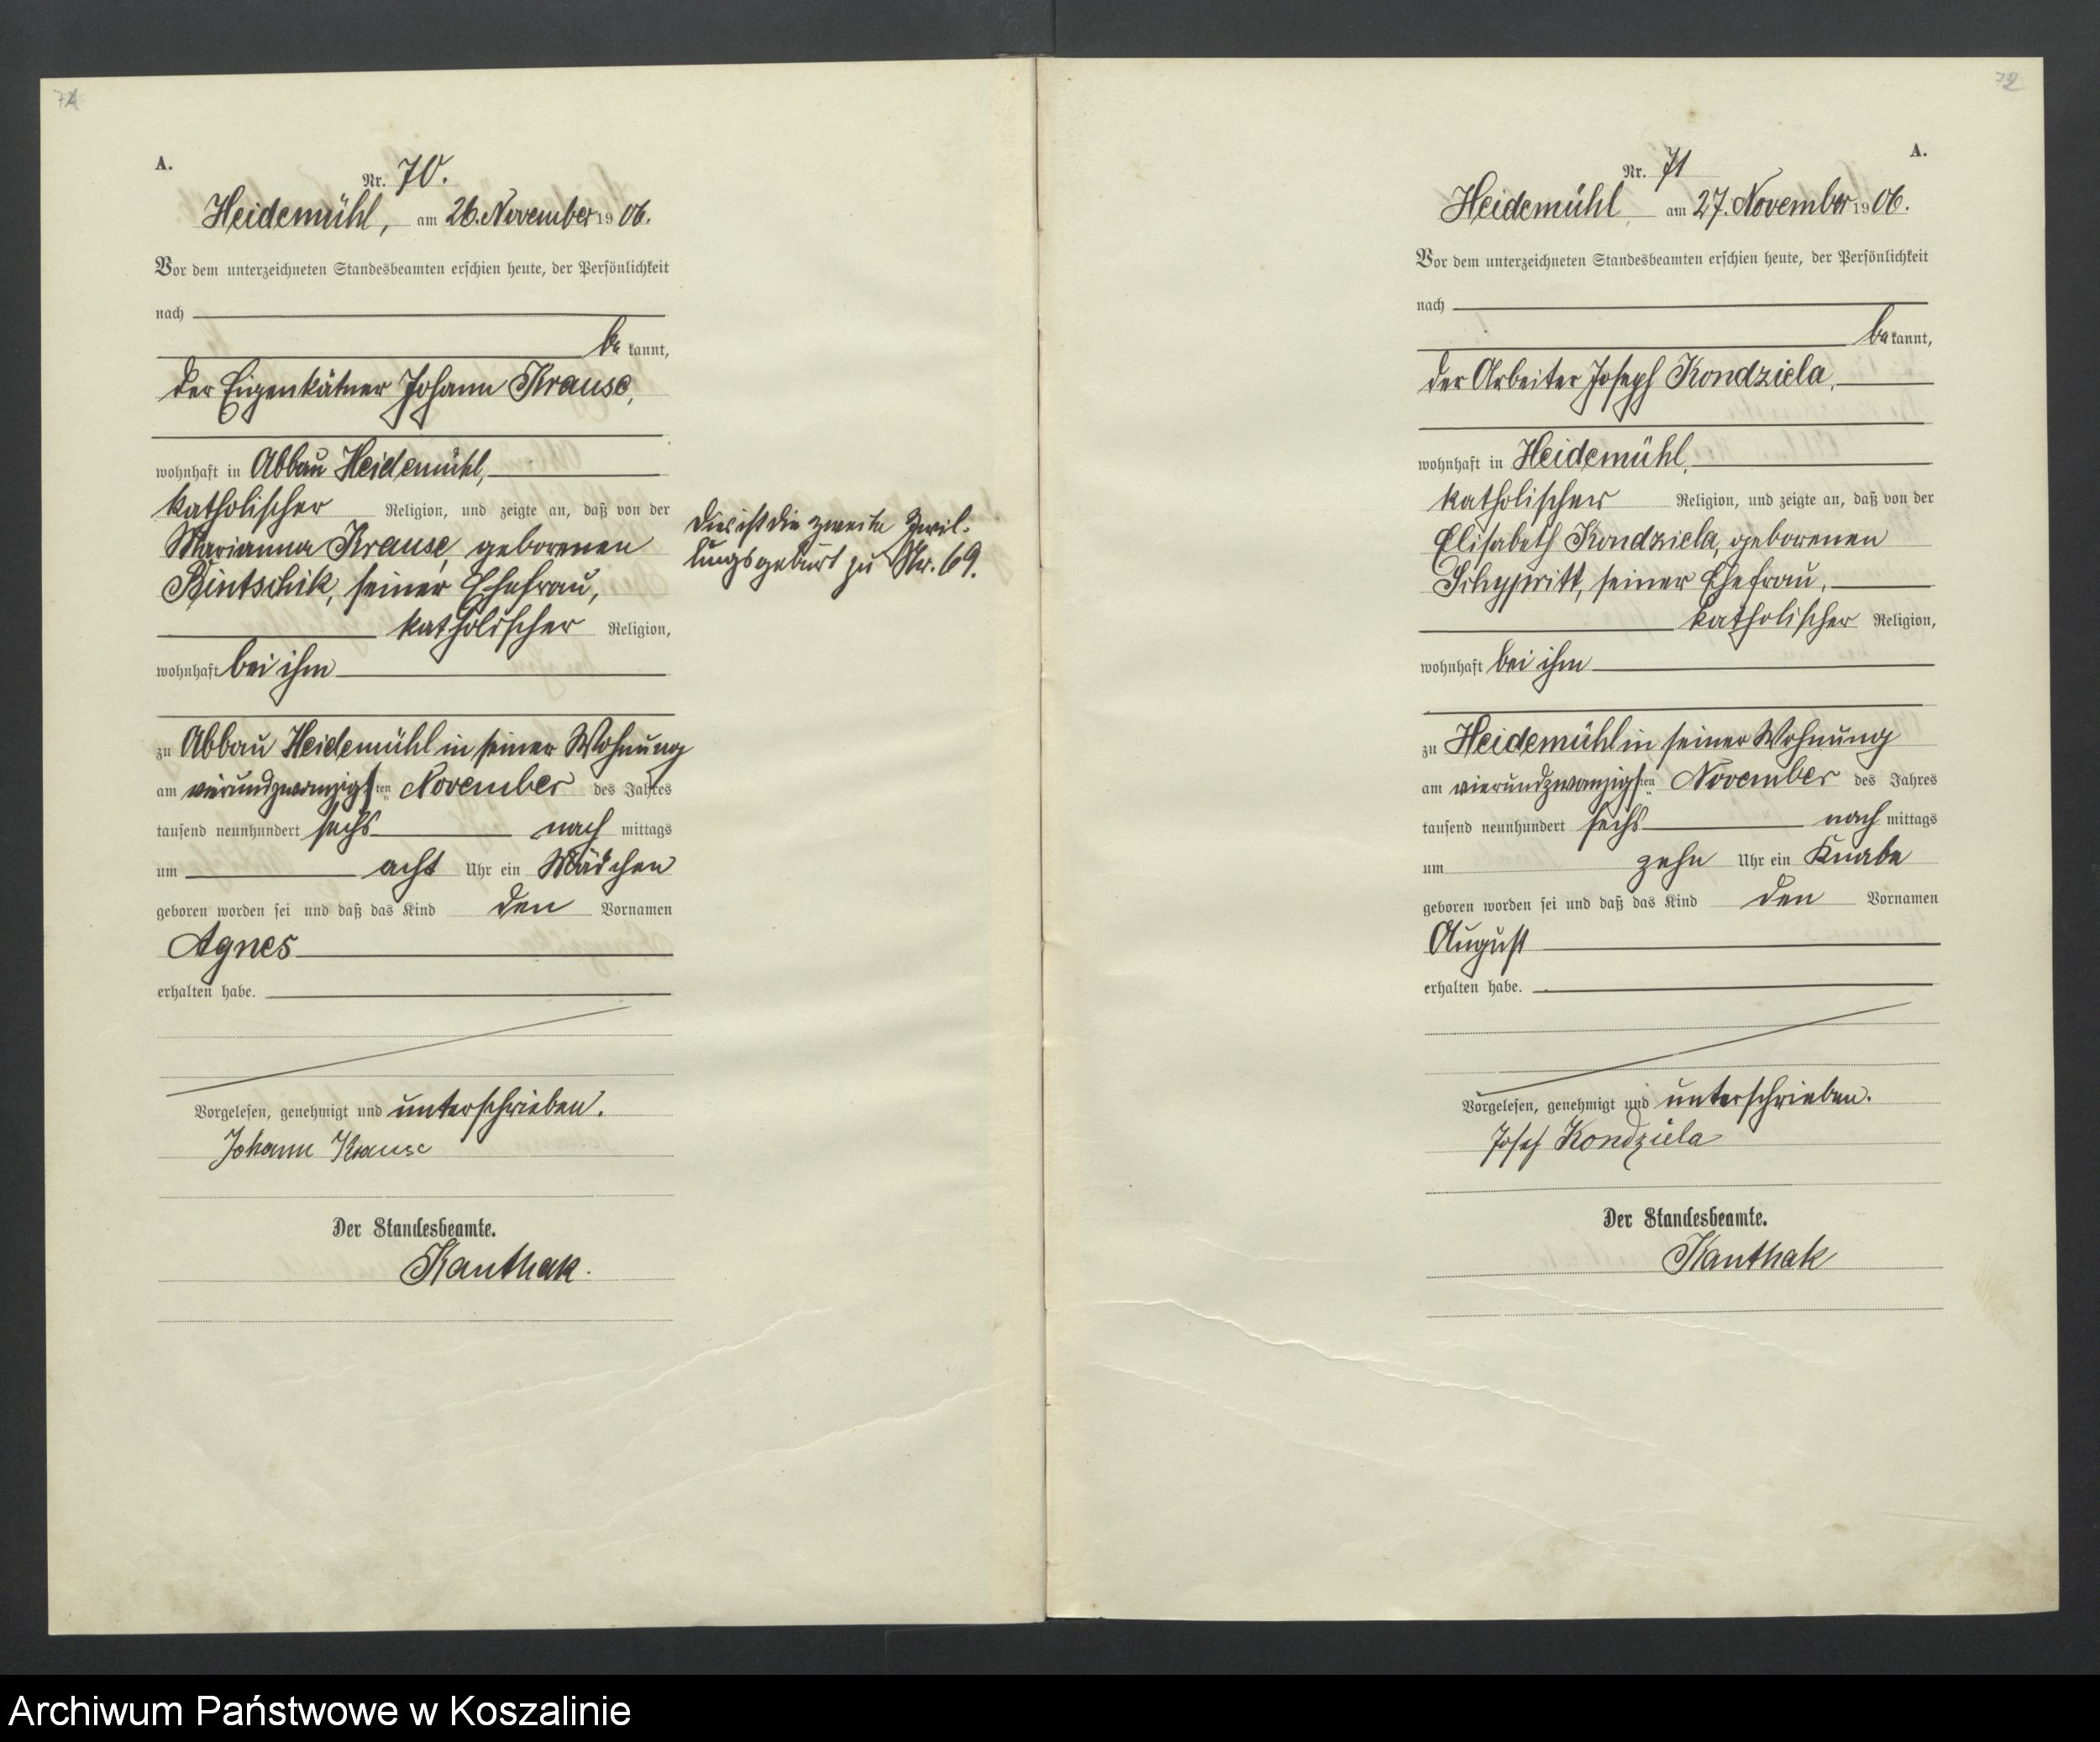 71
A.
Nr. 70.
Heidemühl, am 26. November 1906.
Vor dem unterzeichneten Standesbeamten erschien heute, der Persönlichkeit
nach
be kannt,
der Eigenkätner Johann Krause,
wohnhaft in Abbau Heidemühl,
katholischer Religion, und zeigte an, daß von der
Marianna Krause, geborenen
Bintschik, seiner Ehefrau,
katholischer Religion,
wohnhaft bei ihm
zu Abbau Heidemühl in seiner Wohnung
am vierundzwanzigsten November des Jahres
tausend neunhundert sechs nach mittags
um acht Uhr ein Mädchen
geboren worden sei und daß das Kind den Vornamen
Agnes
erhalten habe.
Vorgelesen, genehmigt und unterschrieben.
Johann Krause
Der Standesbeamte.
Kanthak.
Dies ist die zweite Zwil-
lingsgeburt zu Nr. 69.
72
A.
Nr. 71
Heidemühl, am 27. November 1906.
Vor dem unterzeichneten Standesbeamten erschien heute, der Persönlichkeit
nach
be kannt,
der Arbeiter Joseph Kondziela,
wohnhaft in Heidemühl,
katholischer Religion, und zeigte an, daß von der
Elisabeth Kondziela, geborenen
seiner Ehefrau,
katholischer Religion,
wohnhaft bei ihm
zu Heidemühl in seiner Wohnung
am vierundzwanzigsten November des Jahres
tausend neunhundert sechs nach mittags
um zehn Uhr ein Knabe
geboren worden sei und daß das Kind den Vornamen
August
erhalten habe.
Vorgelesen, genehmigt und unterschrieben.
Josef Kondziela
Der Standesbeamte.
Kanthak
Archiwum Państwowe w Koszalinie